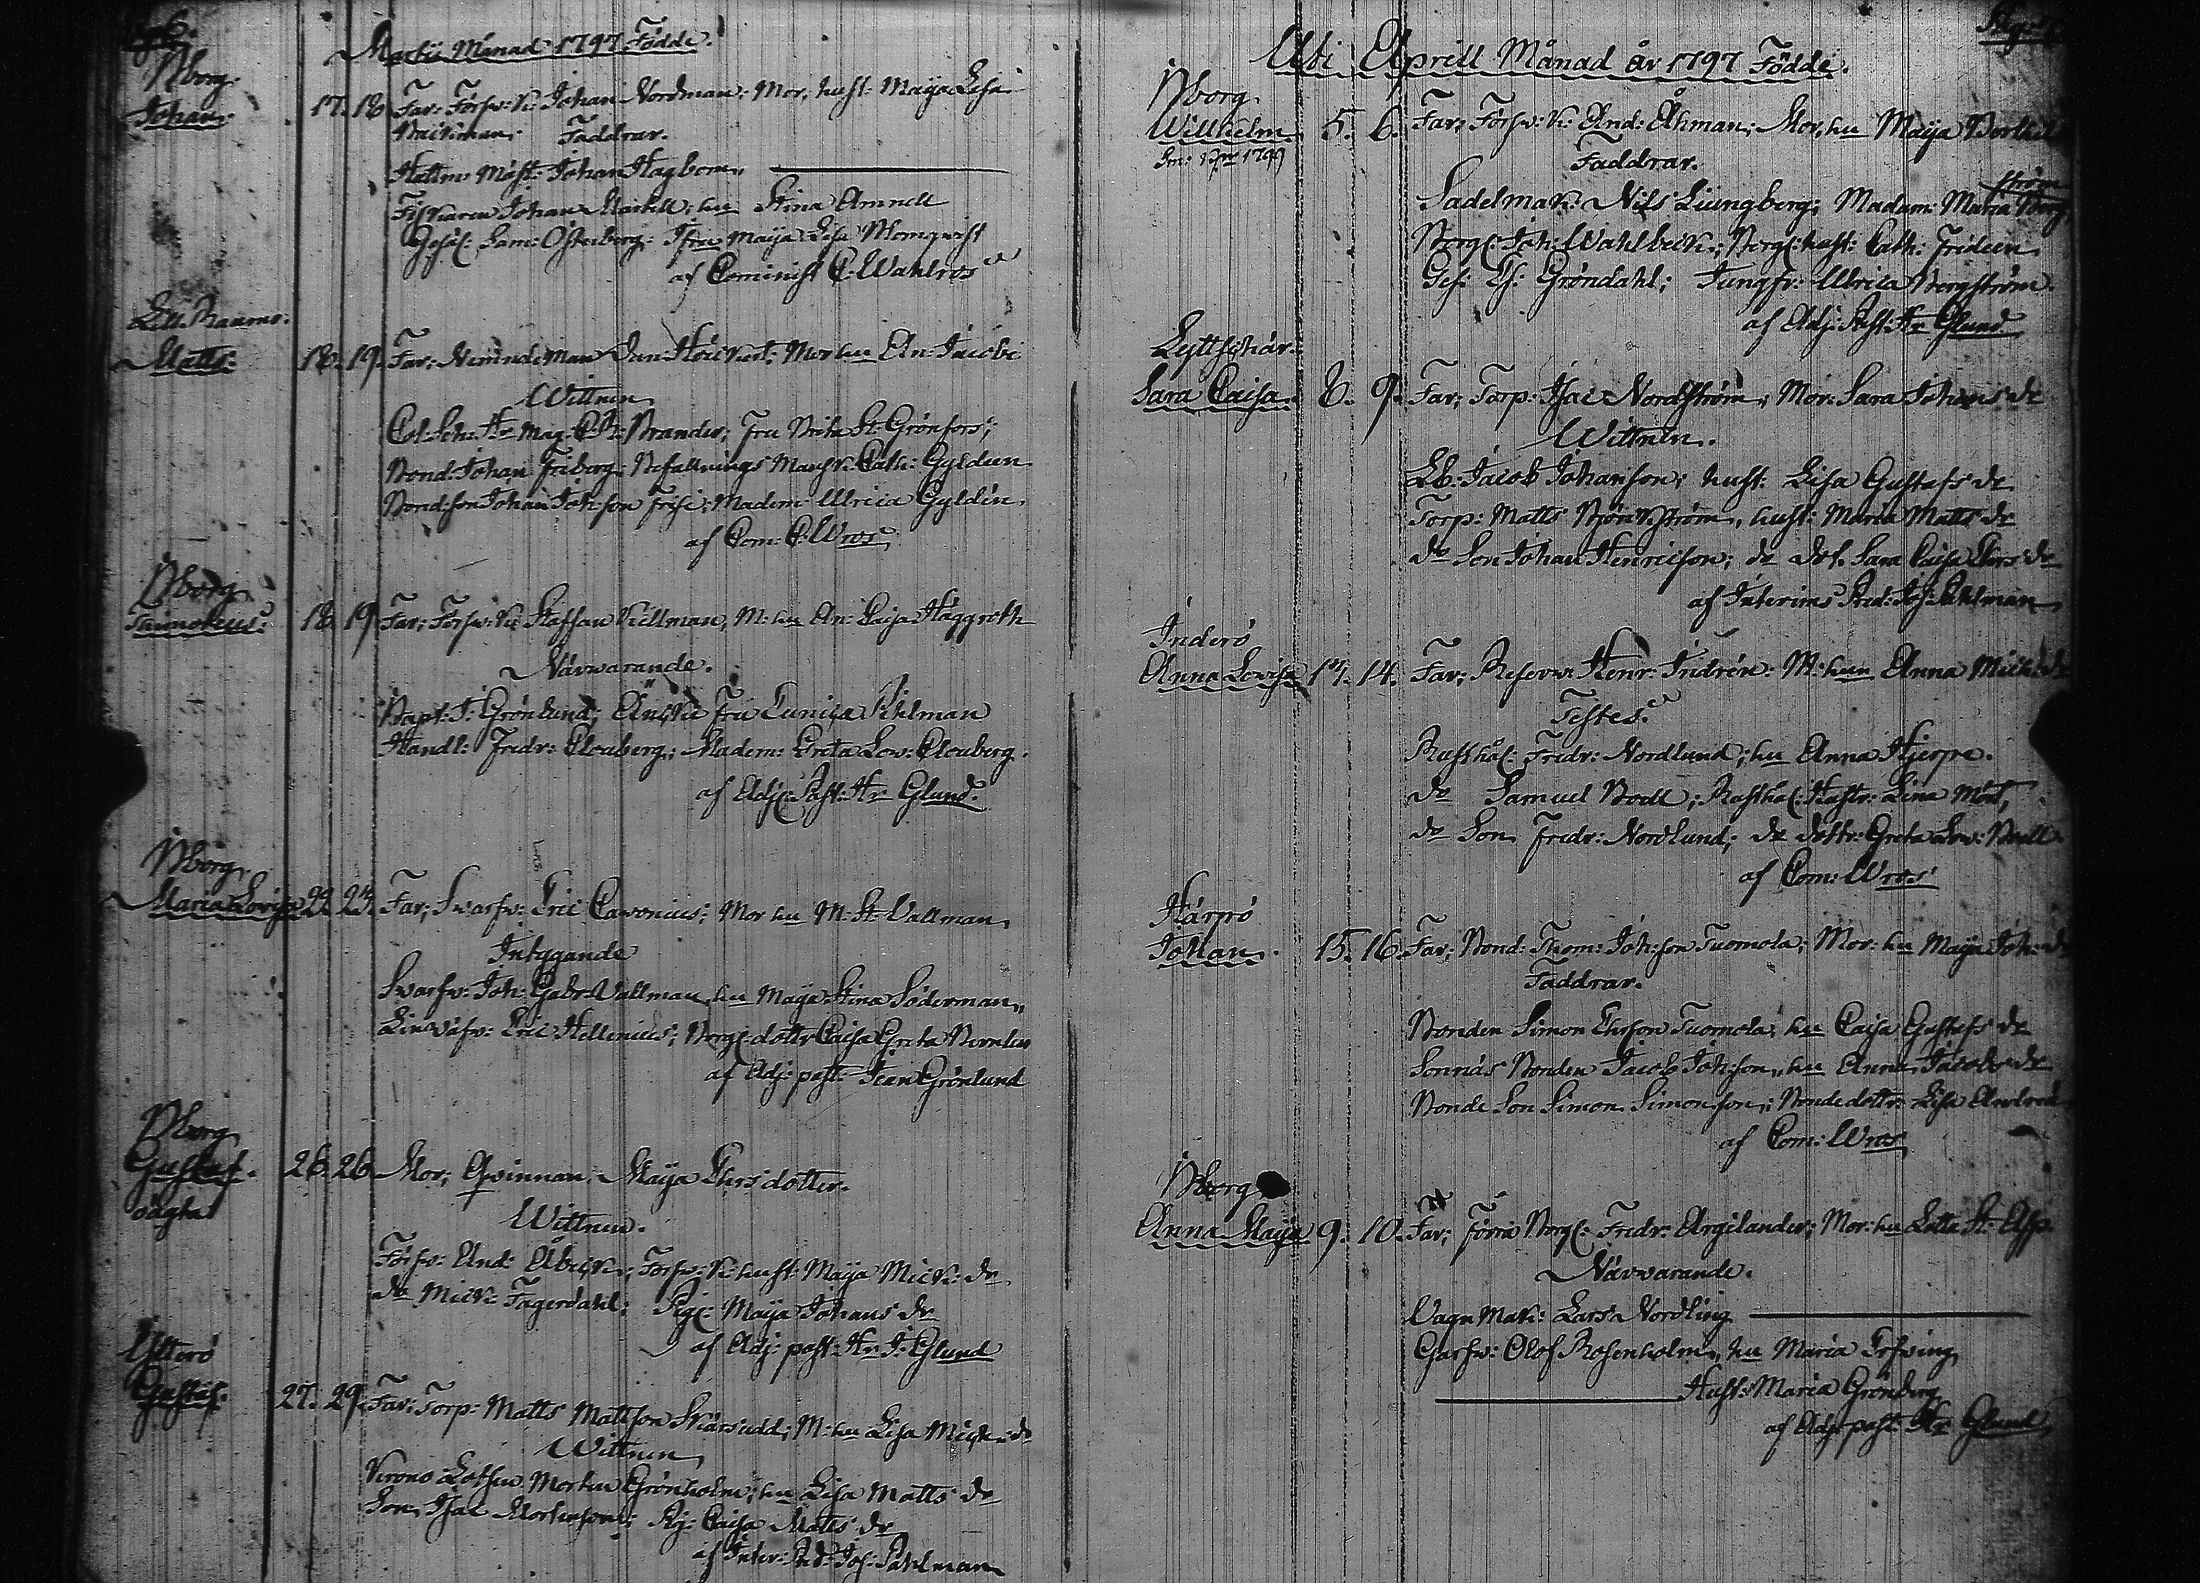 Martii Månad 1797 Födde.
Bborg.
Johan. 17. 18. Far: Förswk: Johan Nordman: Mor, hust: Maija Lisa
Faddrar.
Hattm: Mäst: Johan Hagbom
Fiskaren Johan Markell; hu Stina Amnell
Gesäl: Sam: Österberg: Jfru Maija Lisa Blomqvist
af Cominist C. Wahlros
Matts. 18. 19. Far: Nämndeman Mor hu An: Jacobi
Wittnen
Col: Sch: Hr Mag: Brander; Fru Brita St: Grönfors;
Bond: Johan Friberg: Befallnings Mansk: Cath: Gyldeen
Bond: son Johan Joh:son Frise; Madem: Ulrica Gyldén
af Com: C. Wros
Bborg
18 19 Far: Försw:k: Staffan Kiellman, M: hu An: Caisa Häggroth
Närwarande.
Bapt: J: Grönlund; Änke fru Eunica Pihlman
Handl: Fredr: Clouberg; Madem: Greta Lov: Clouberg.
af Adj: Past: Hr Glund.
Bborg
Maria Lovisa 22. 23. Far; Swarfw: Eric Cawonius; Mor hu M: St: Vallman
Intygande
Swarfw: Joh: Gabr: Vallman, hu Maija Stina Söderman
Linwäfw: Eric Hellenius; Borg: dottr Caisa Greta
af Adj: past: Jean Grönlund
Bborg
Gustaf. 26. 26. Mor; Qvinnan Maija Ehrsdotter.
oägta
Wittnen.
Försw: And: Åbeck; Försw:k: hust: Maija Mick: dr
do Mick: Fagerdahl: Pig: Maija Johans dr
af Adj: past: Hr J: Glund
Ytterö
Gustaf. 27. 29. Far: Torp: Matts Mattson Skärsudd; M: hu Lisa Mick: dr
Wittnen
Krono Lotsen Morten Grönholm; hu Lisa Matts dr
Son Isac Mortenson; Pig: Caisa Matts dr
af Inter: Pred: Jos: Pahlman
Uti Aprill Månad år 1797 Födde.
Bborg
Wilhelm 5. 6. Far; Försw: k: And: Åhman; Mor, hu Maija
Faddrar.
Sadelmak: Nils Liungberg; Madam: Maria
Borg: Joh: Wahlbeck; Borg: hust: Cath: Frideen
Ges: Es: Gröndahl; Jungfr: Ulrica Bergström.
af Adj: Past: Hr Glund
Sara Caisa. 8. 9. Far; Torp: Isac Nordström; Mor: Sara Johans dr
Wittnen.
Lb: Jacob Johanson; hust: Lisa Gustafs dr
Torp: Matts Björkström, hust: Maria Matts dr
do Son Johan Henricson; do dot. Sara Caisa Ehrs dr
af Interims Pred: Jos: Pahlman
Inderö
Anna Lovisa 14. Far; Reserv: Henr: Indrén: M: hu Anna Mick: dr
Testes.
Rusthål: Fredr: Nordlund; hu Anna Hjerpe.
do Samuel Bodl; Rusthål: Hustr: Lena Mört,
do Son Fredr: Nordlund; do dottr: Greta Lov: Bodl
af Com: Wros
Härpö
Johan. 15. 16. Far; Bond: Thom: Joh:son Tuomola; Mor: hu Maija Joh: dr
Faddrar.
Bonden Simon Ehrson Tuomola; hu Caisa Gustafs dr
Sonnäs Bonden Jacob Joh:son, hu Anna Jacobs dr
Bonde Son Simon Simonson; Bonde dottr: Lisa
af Com: Wros
Bborg
Anna Maija 9. 10. Far; förra Borg: Fredr: Argilander; Mor: hu Lotta St: Asp
Närwarande.
Vagn Mak: Lars Nordling
Garfw: Olof Rosenholm, hu Maria Tefwing
Hust: Maria Grönberg
af Adj: past: Hr Glund